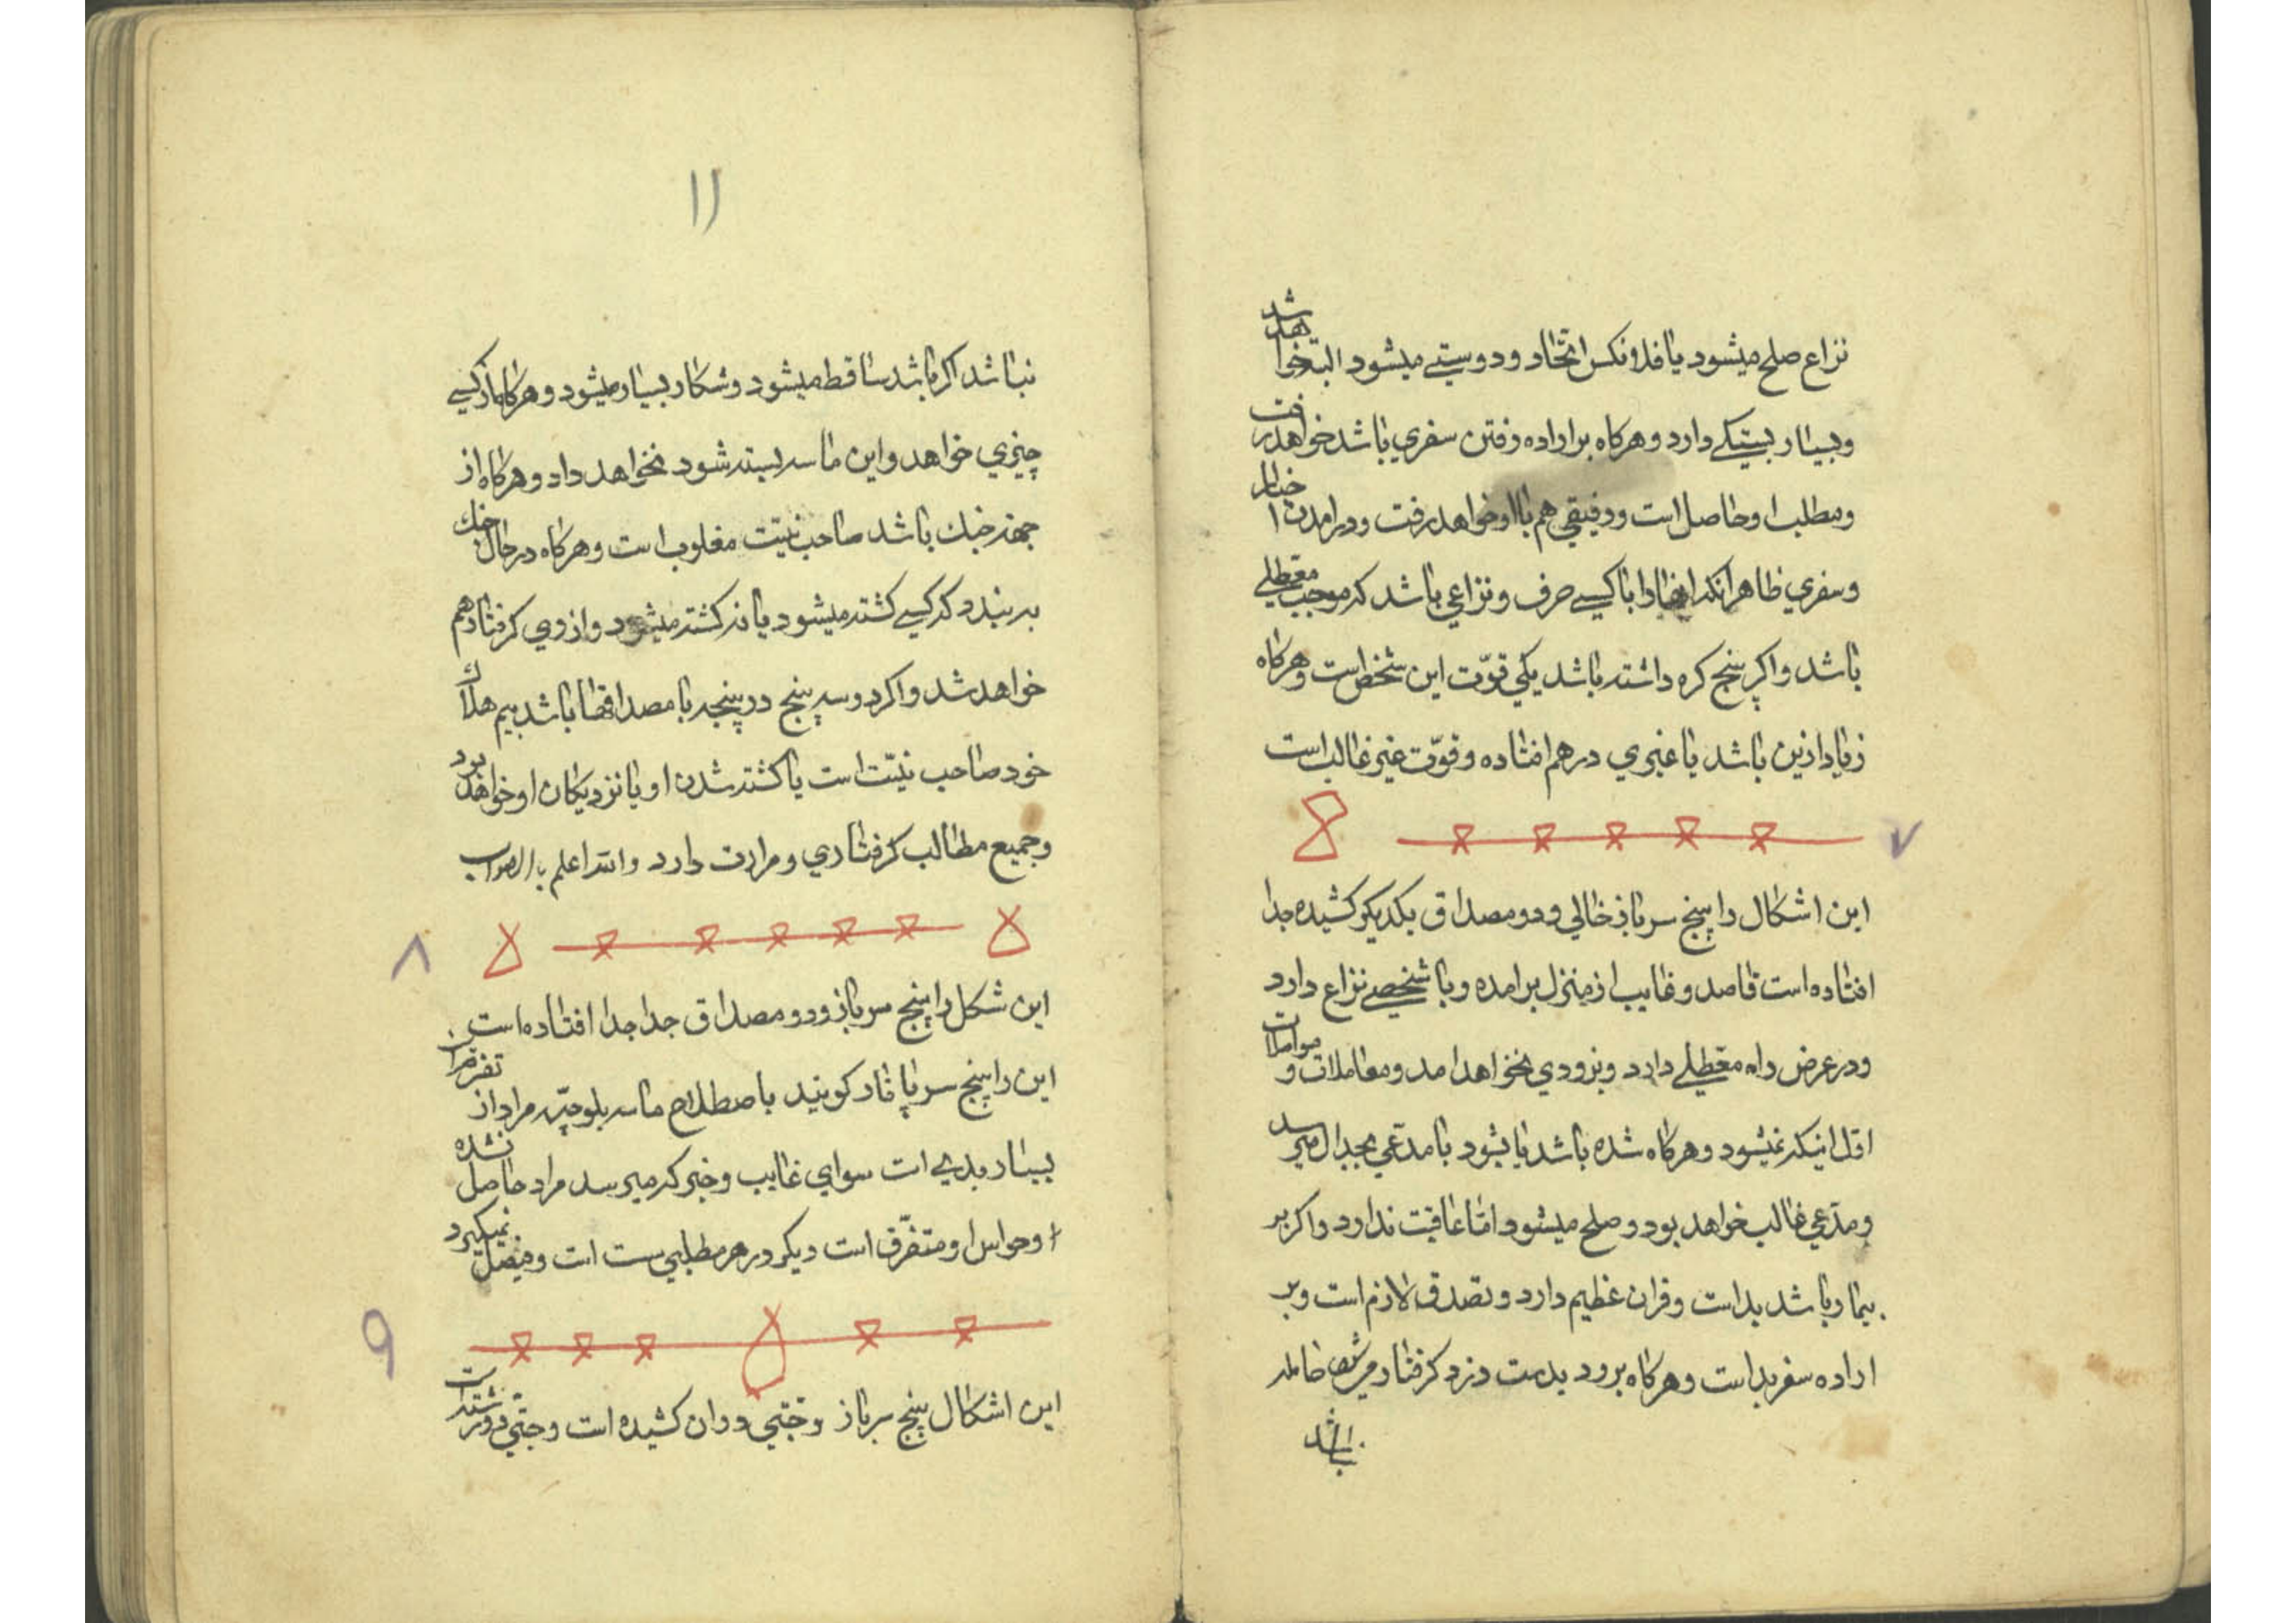 نزاع صلح میشود یا فلانکس اتحاد و دوستی میشود البته خواهد شد
و بسیار بستکی دارد و هرکاه بر اراده رفتن سفری باشد خواهد رفت
و مطلب او حاصل است و رفیقی هم با او خواهد رفت و در امدن
و سفری ظاهرا نکه با کسی حرف و نزاعی باشد که موجب معطلی
باشد و اکر پنج کره داشته باشد یکی قوّت این شخص است و هرکاه
زیاد ازین باشد با غیری در هم افتاده و قوّت غیر غالب است
۷
این اشکال را پنج سر باز خالی و دو مصداق یکدیکر کشیده جدا
افتاده است قاصد و غایب از منزل برامده و با شخصی نزاع دارد
و در عرض راه معطلی دارد و بزودی نخواهد امد و معاملات و
اوّل اینکه نمیشود و هرکاه شده باشد یا بشود با مدعی بجدال میرسد
و مدّعی غالب خواهد بود و صلح میشود امّا عاقبت ندارد و اکر بر
بیمار باشد بد است و قران عظیم دارد و تصدق لازم است و بر
اراده سفر بد است و هرکاه برود بدست دزد کرفتار
باشد
۱۱
نباشد اکر باشد ساقط میشود و شکار بسیار میشود و هرکاه از کسی
چیزی خواهد و این ماسه بسته شود نخواهد داد و هرکاه از
جهة جنك باشد صاحب نیّت مغلوب است و هرکاه در حال جنك
به بیند که کسی کشته میشود یا نه کشته میشود و از وی کرفتار هم
خواهد شد و اکر دو سه پنج در پنجه با مصداقها باشد بیم هلاك
خود صاحب نیّت است یا کشته شدن او یا نزدیکان او خواهد بود
و جمیع مطالب کرفتاری و مرارت دارد والله اعلم بالصواب
۸
این شکل را پنج سر باز و دو مصداق جدا جدا افتاده است
این را پنج سر پا ماد کویند باصطلاح ماسه بلوچیّه مراد از
بسیار بدی است سوای غایب و خبر که میرسد مراد حاصل نشده
و حواس او متفرّق است دیکر در هر مطلبی سست است و فیصل نمیکیرد
۹
این اشکال پنج سر باز و جتّی در ان کشیده است و جتّی